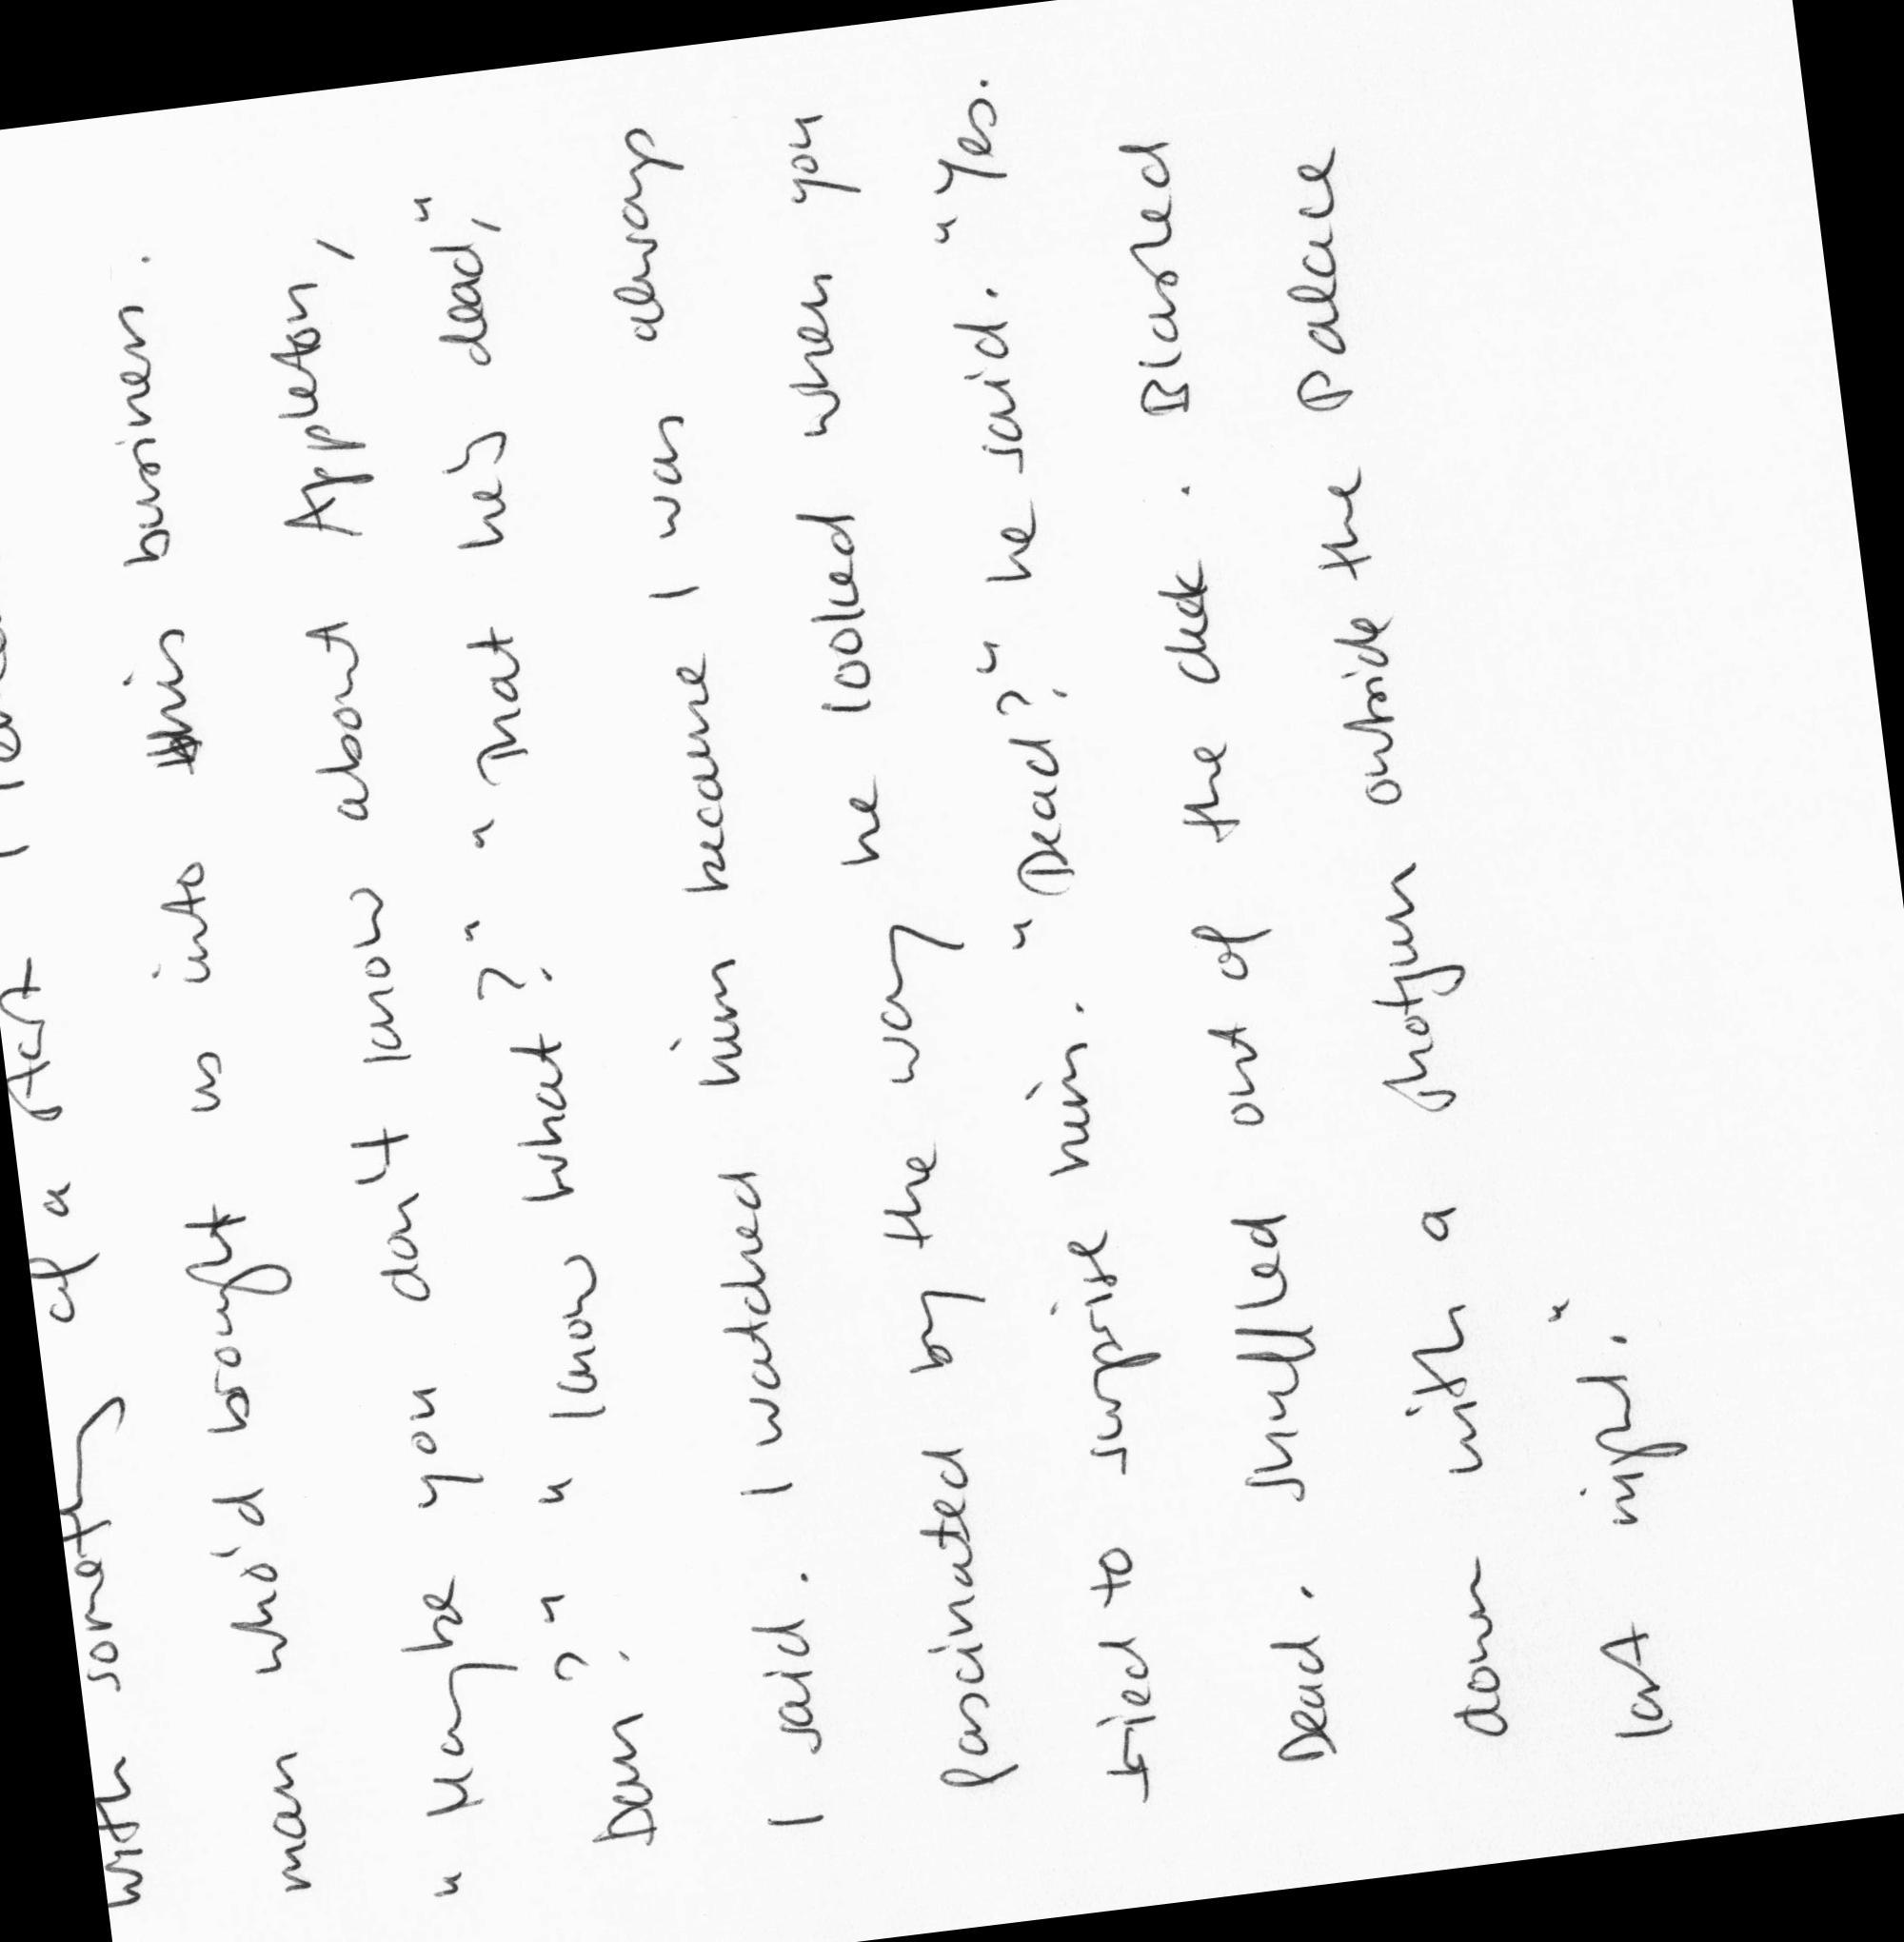 with something of a start I
man who'd brought us into this business.
"Maybe you don't know about Appleton,
Dan?" "Know what?" "That he's dead,"
I said. I watched him because I was always
fascinated by the way he looked when you
tried to surprise him. "Dead?" he said. "Yes.
Dead. Shuffled out of the deck. Blasted
down with a shotgun outside the Palace
last night."